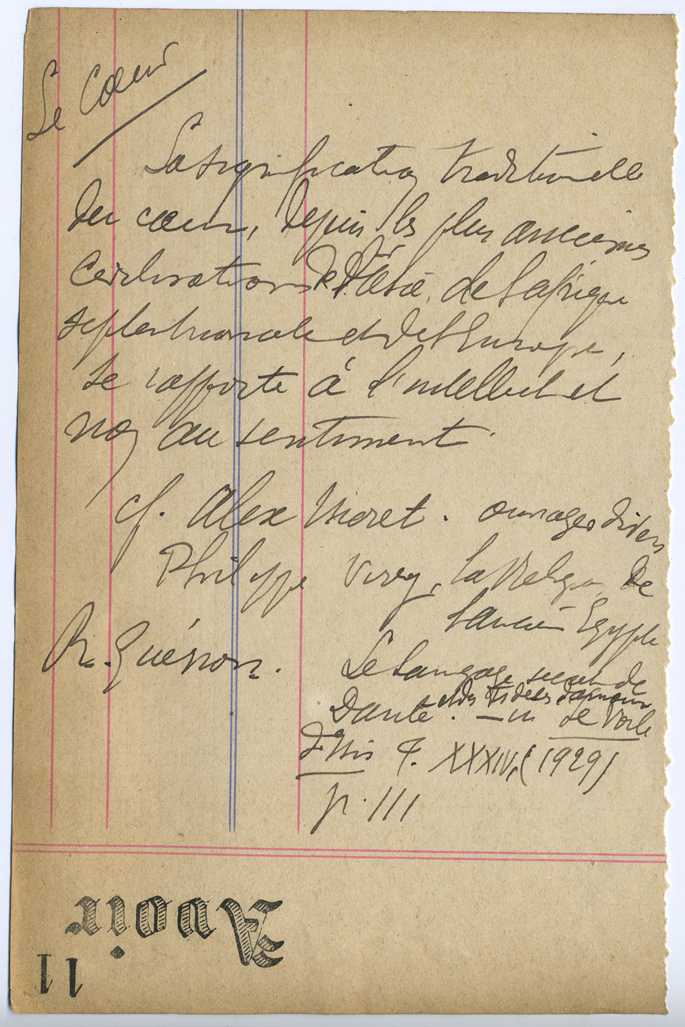 Le Cœur
La signification traditionnelle
du cœur, depuis les plus anciennes
civilisations de l'Asie, de l'afrique
septentrionale et de l'Europe,
se rapporte à l'intellect et
non au sentiment.
cf. Alex Moret. ouvrages divers
Philippe Virey, La Religion de
l'ancienne Egypte
R. Guénon. Le langage secret de
Dante et des Fidèles d'amour. — in Le Voile
d'Isis T. XXXIV, (1929)
p. 111
Avoir
11